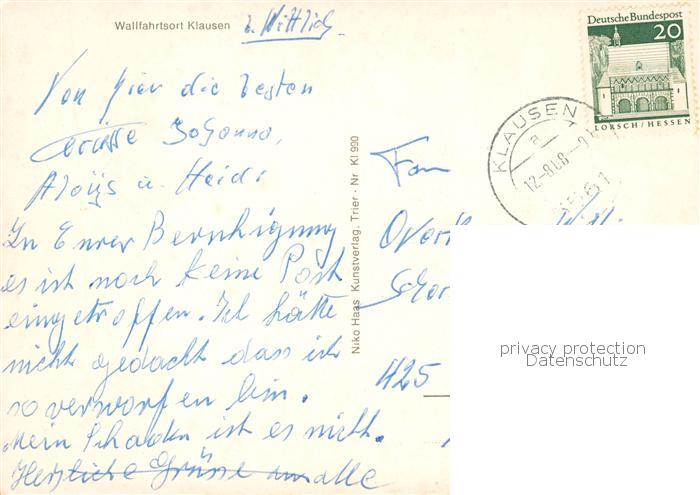 Wallfahrtsort Klausen b. Wittlich.
Von hier die besten
Grüsse Johanna,
Aloijs u. Heidi
In Eurer Beruhigung
es ist noch keine Post
eingetroffen. Ich hätte
nicht gedacht dass ich
so verworfen bin.
Mein Schaden ist es nicht.
Herzliche Grüsse an alle
Niko Haas Kunstverlag, Trier · Nr KI 990
Deutsche Bundespost
20
LORSCH/HESSEN
KLAUSEN
a
5561
Fam
425
privacy protection
Datenschutz